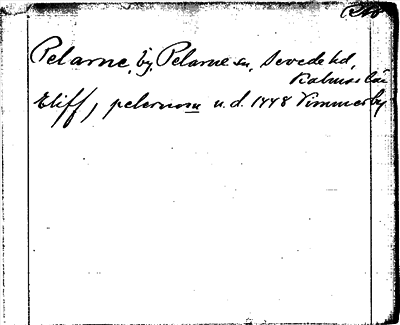 Pelarne, by, Pelarne sn, Sevede hd,
Kalmar län
Eliff, pelernom u.d. 1448 Vimmerby